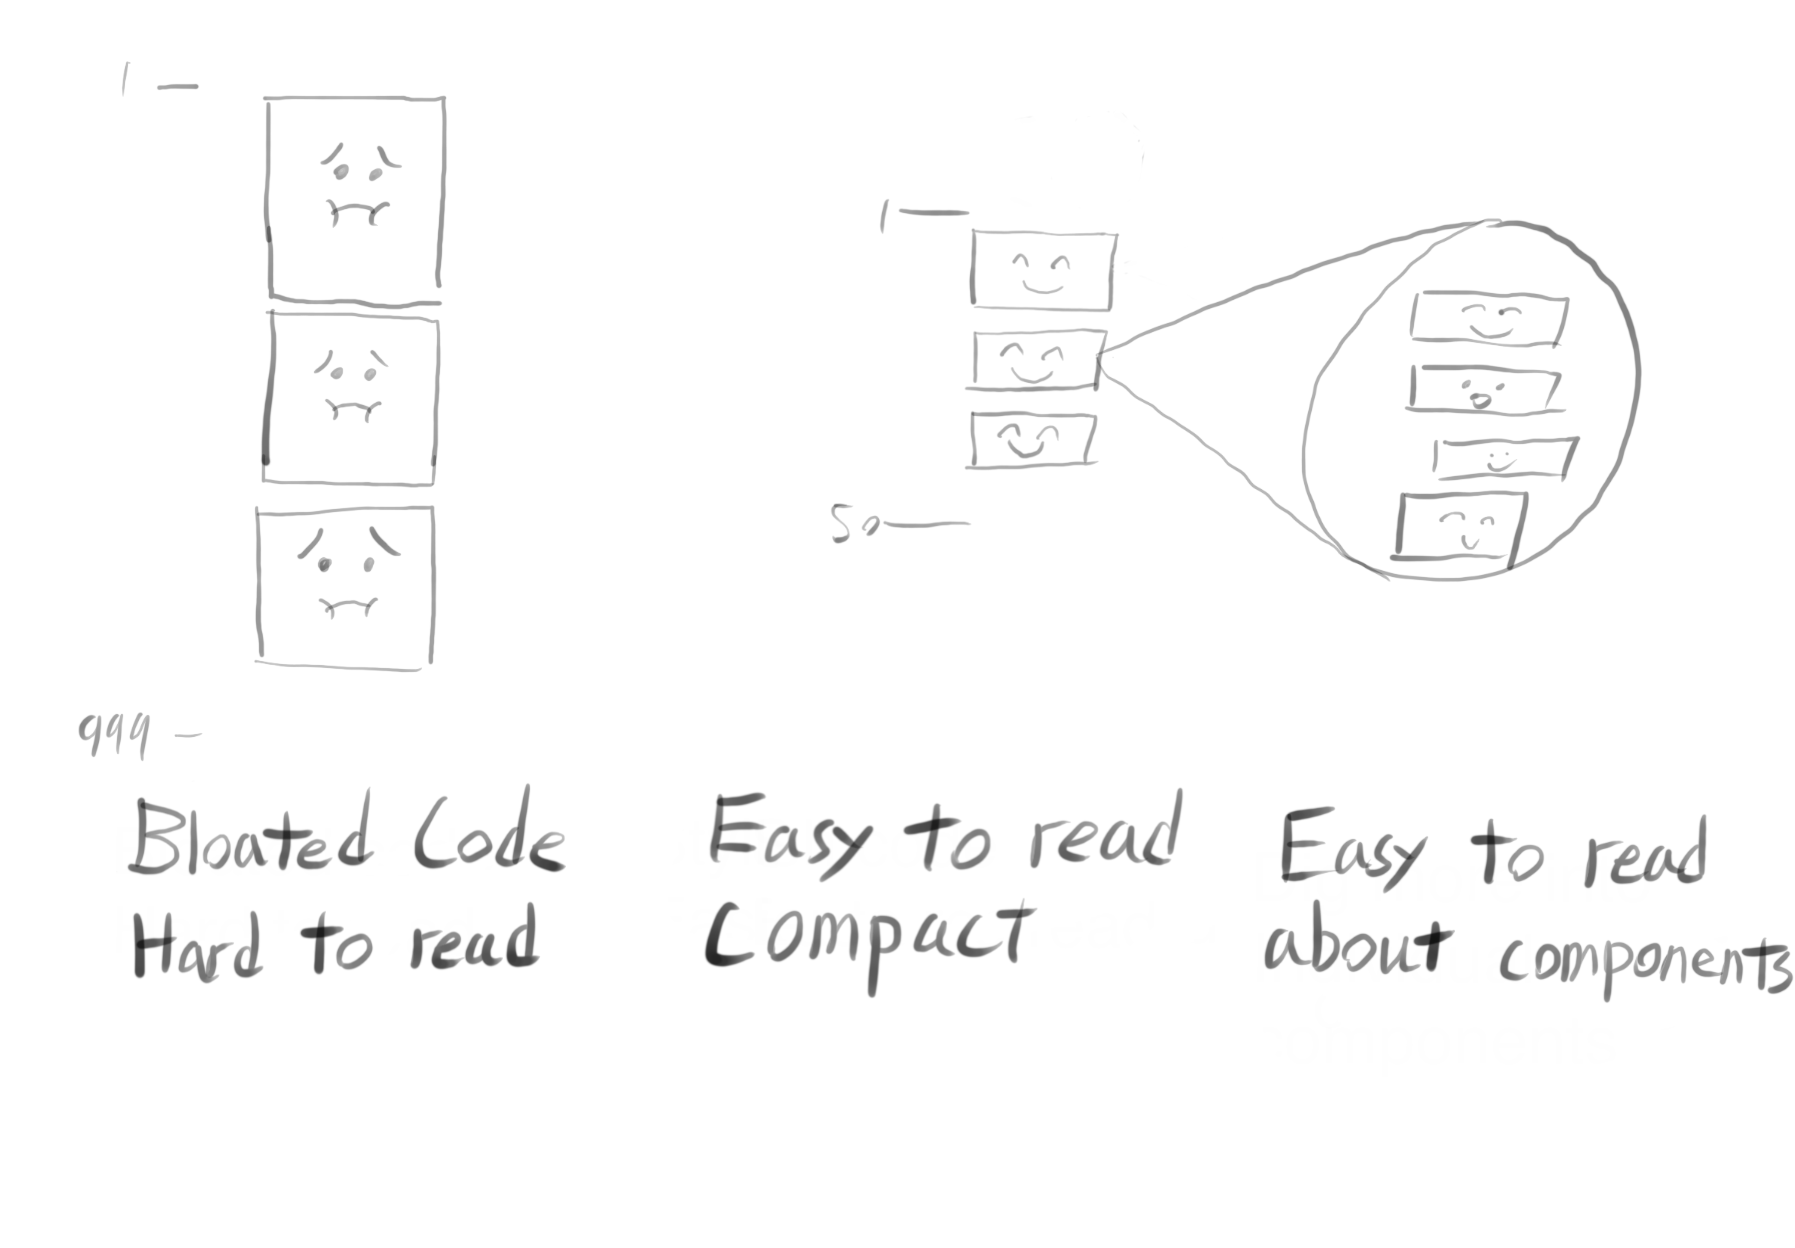 1 —
999 —
Bloated Code
Hard to read
1 —
50 —
Easy to read
Compact
Easy to read
about components